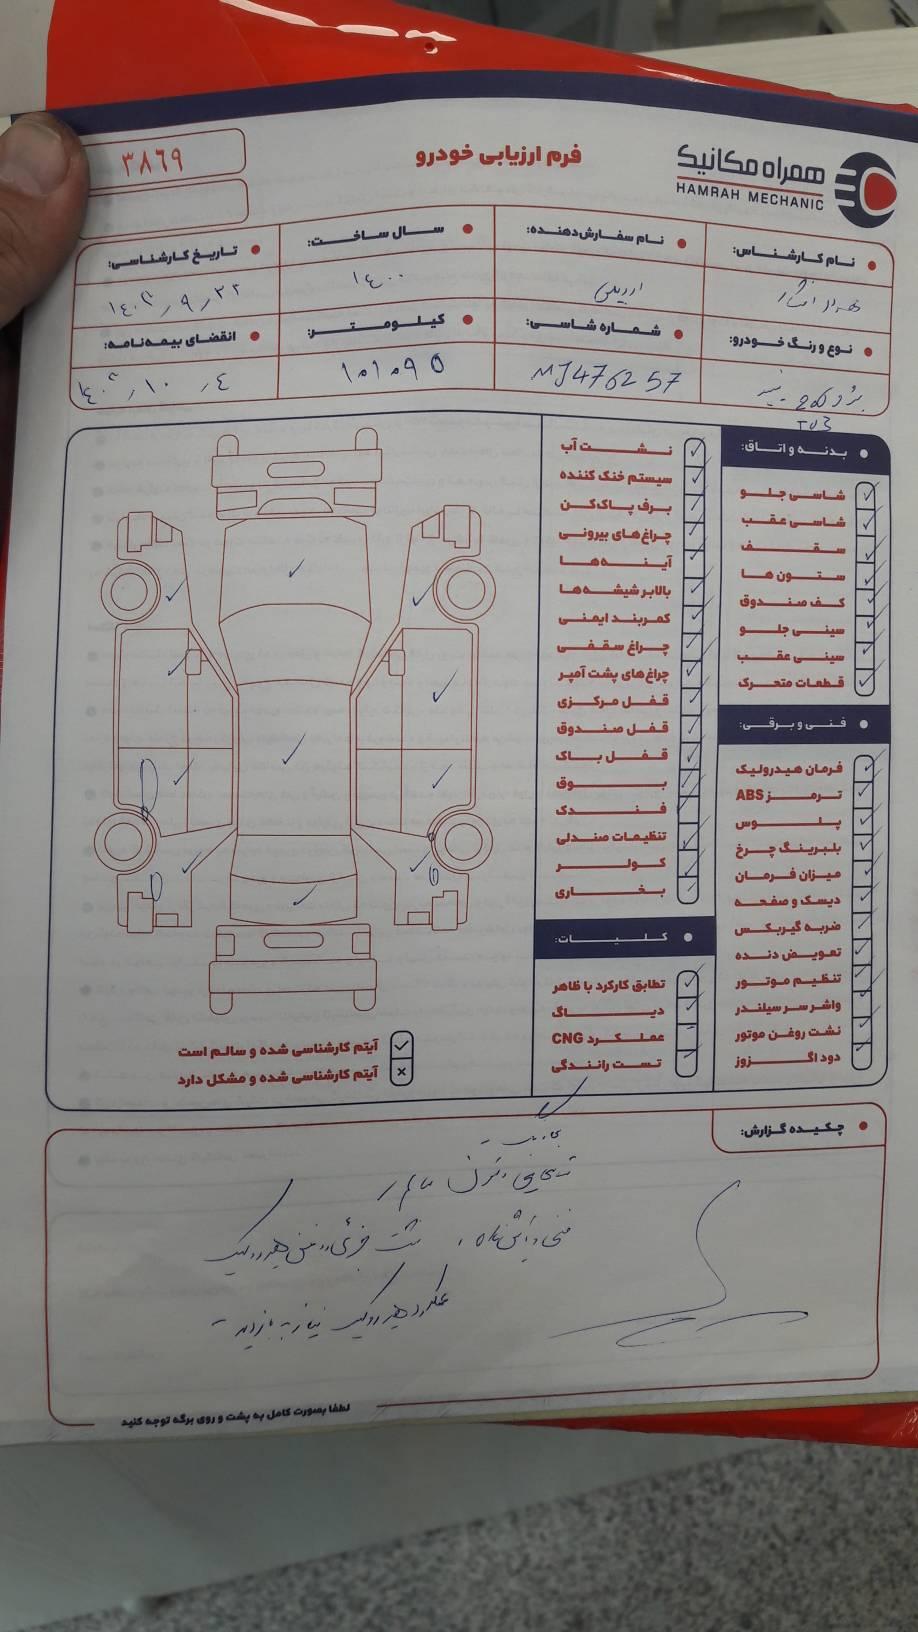 همراه مکانیک
HAMRAH MECHANIC
فرم ارزیابی خودرو
۳۸۶۹
نام کارشناس:
نام سفارش‌دهنده:
سال ساخت:
تاریخ کارشناسی:
۱۴۰۰
نوع و رنگ خودرو:
شماره شاسی:
کیلومتر:
انقضای بیمه‌نامه:
TU3
MJ476257
۱۰۱۰۹۵
بدنه و اتاق:
شاسی جلو
شاسی عقب
سقف
ستون ها
کف صندوق
سینی جلو
سینی عقب
قطعات متحرک
فنی و برقی:
فرمان هیدرولیک
ترمز ABS
پلوس
بلبرینگ چرخ
میزان فرمان
دیسک و صفحه
ضربه گیربکس
تعویض دنده
تنظیم موتور
واشر سر سیلندر
نشت روغن موتور
دود اگزوز
نشت آب
سیستم خنک کننده
برف پاک‌کن
چراغ‌های بیرونی
آینه‌ها
بالابر شیشه‌ها
کمربند ایمنی
چراغ سقفی
چراغ‌های پشت آمپر
قفل مرکزی
قفل صندوق
قفل باک
بوق
فندک
تنظیمات صندلی
کولر
بخاری
کلیات:
تطابق کارکرد با ظاهر
دیاگ
عملکرد CNG
تست رانندگی
آیتم کارشناسی شده و سالم است
آیتم کارشناسی شده و مشکل دارد
چکیده گزارش:
عملکرد هیدرولیک نیاز به بازدید
لطفا بصورت کامل به پشت و روی برگه توجه کنید